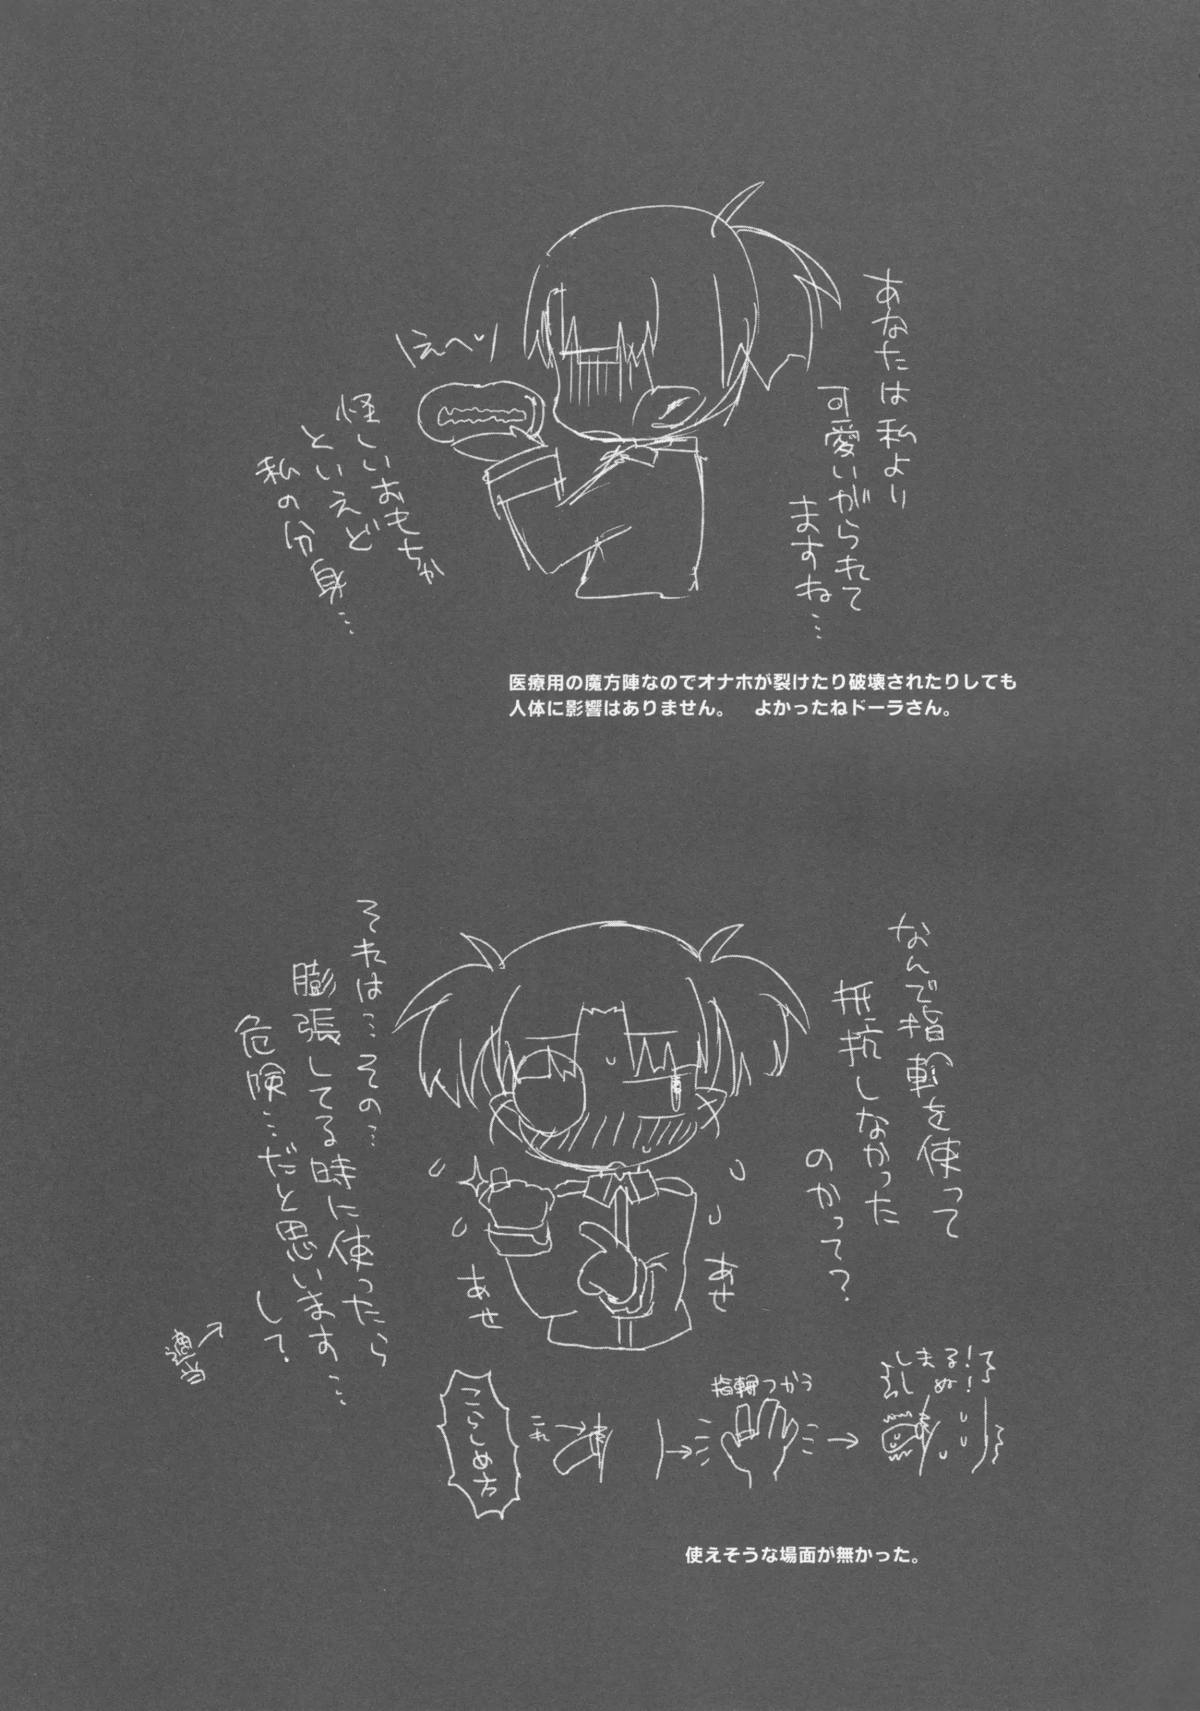 あなたは私より
可愛いがられて
ますね…
怪しいおもちゃ
といえど
私の分身…
医療用の魔方陣なのでオナホが裂けたり破壊されたりしても
人体に影響はありません。　よかったねドーラさん。
なんで指輪を使って
抵抗しなかった
のかって？
あせ
あせ
それは…その…
膨張してる時に使ったら
危険…だと思います…
して
適当
こらしめ方
これ
指輪つかう
しまる！
しぬ！
使えそうな場面が無かった。